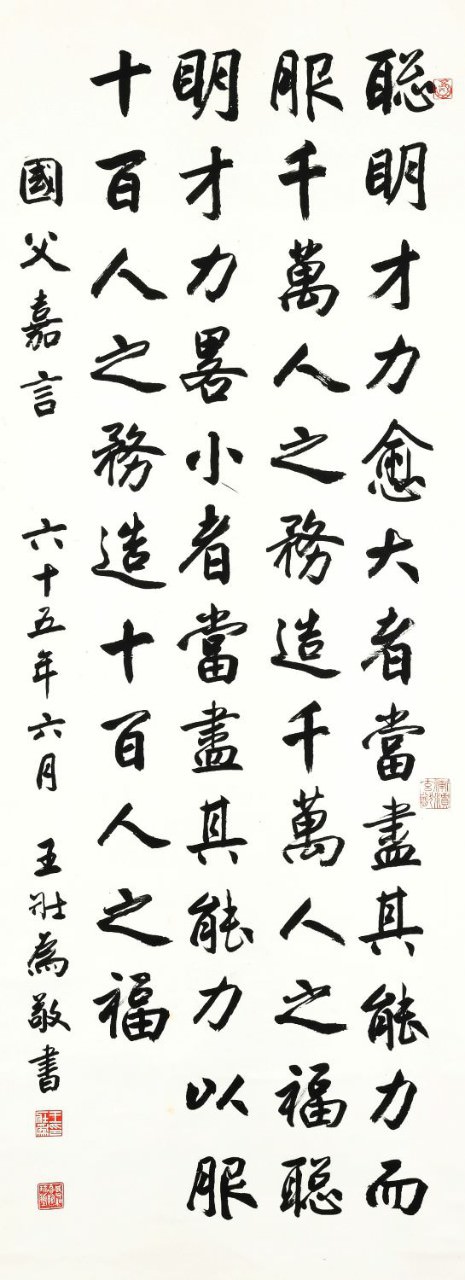 聪明才力愈大者當盡其能力而
服千萬人之務造千萬人之福聪
明才力畧小者當盡其能力以服
十百人之務造十百人之福
國父嘉言 六十五年六月 王壯為敬書